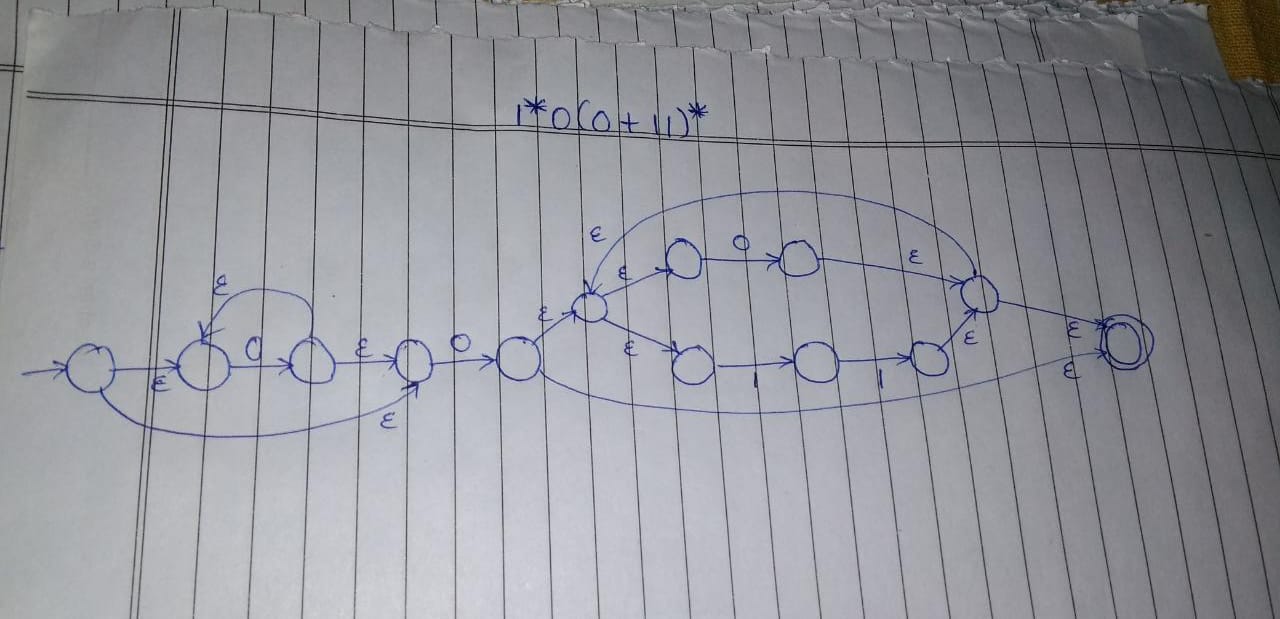 1*0(0+11)*
ε
0
ε
ε
ε
0
ε
ε
ε
0
ε
ε
1
1
ε
ε
ε